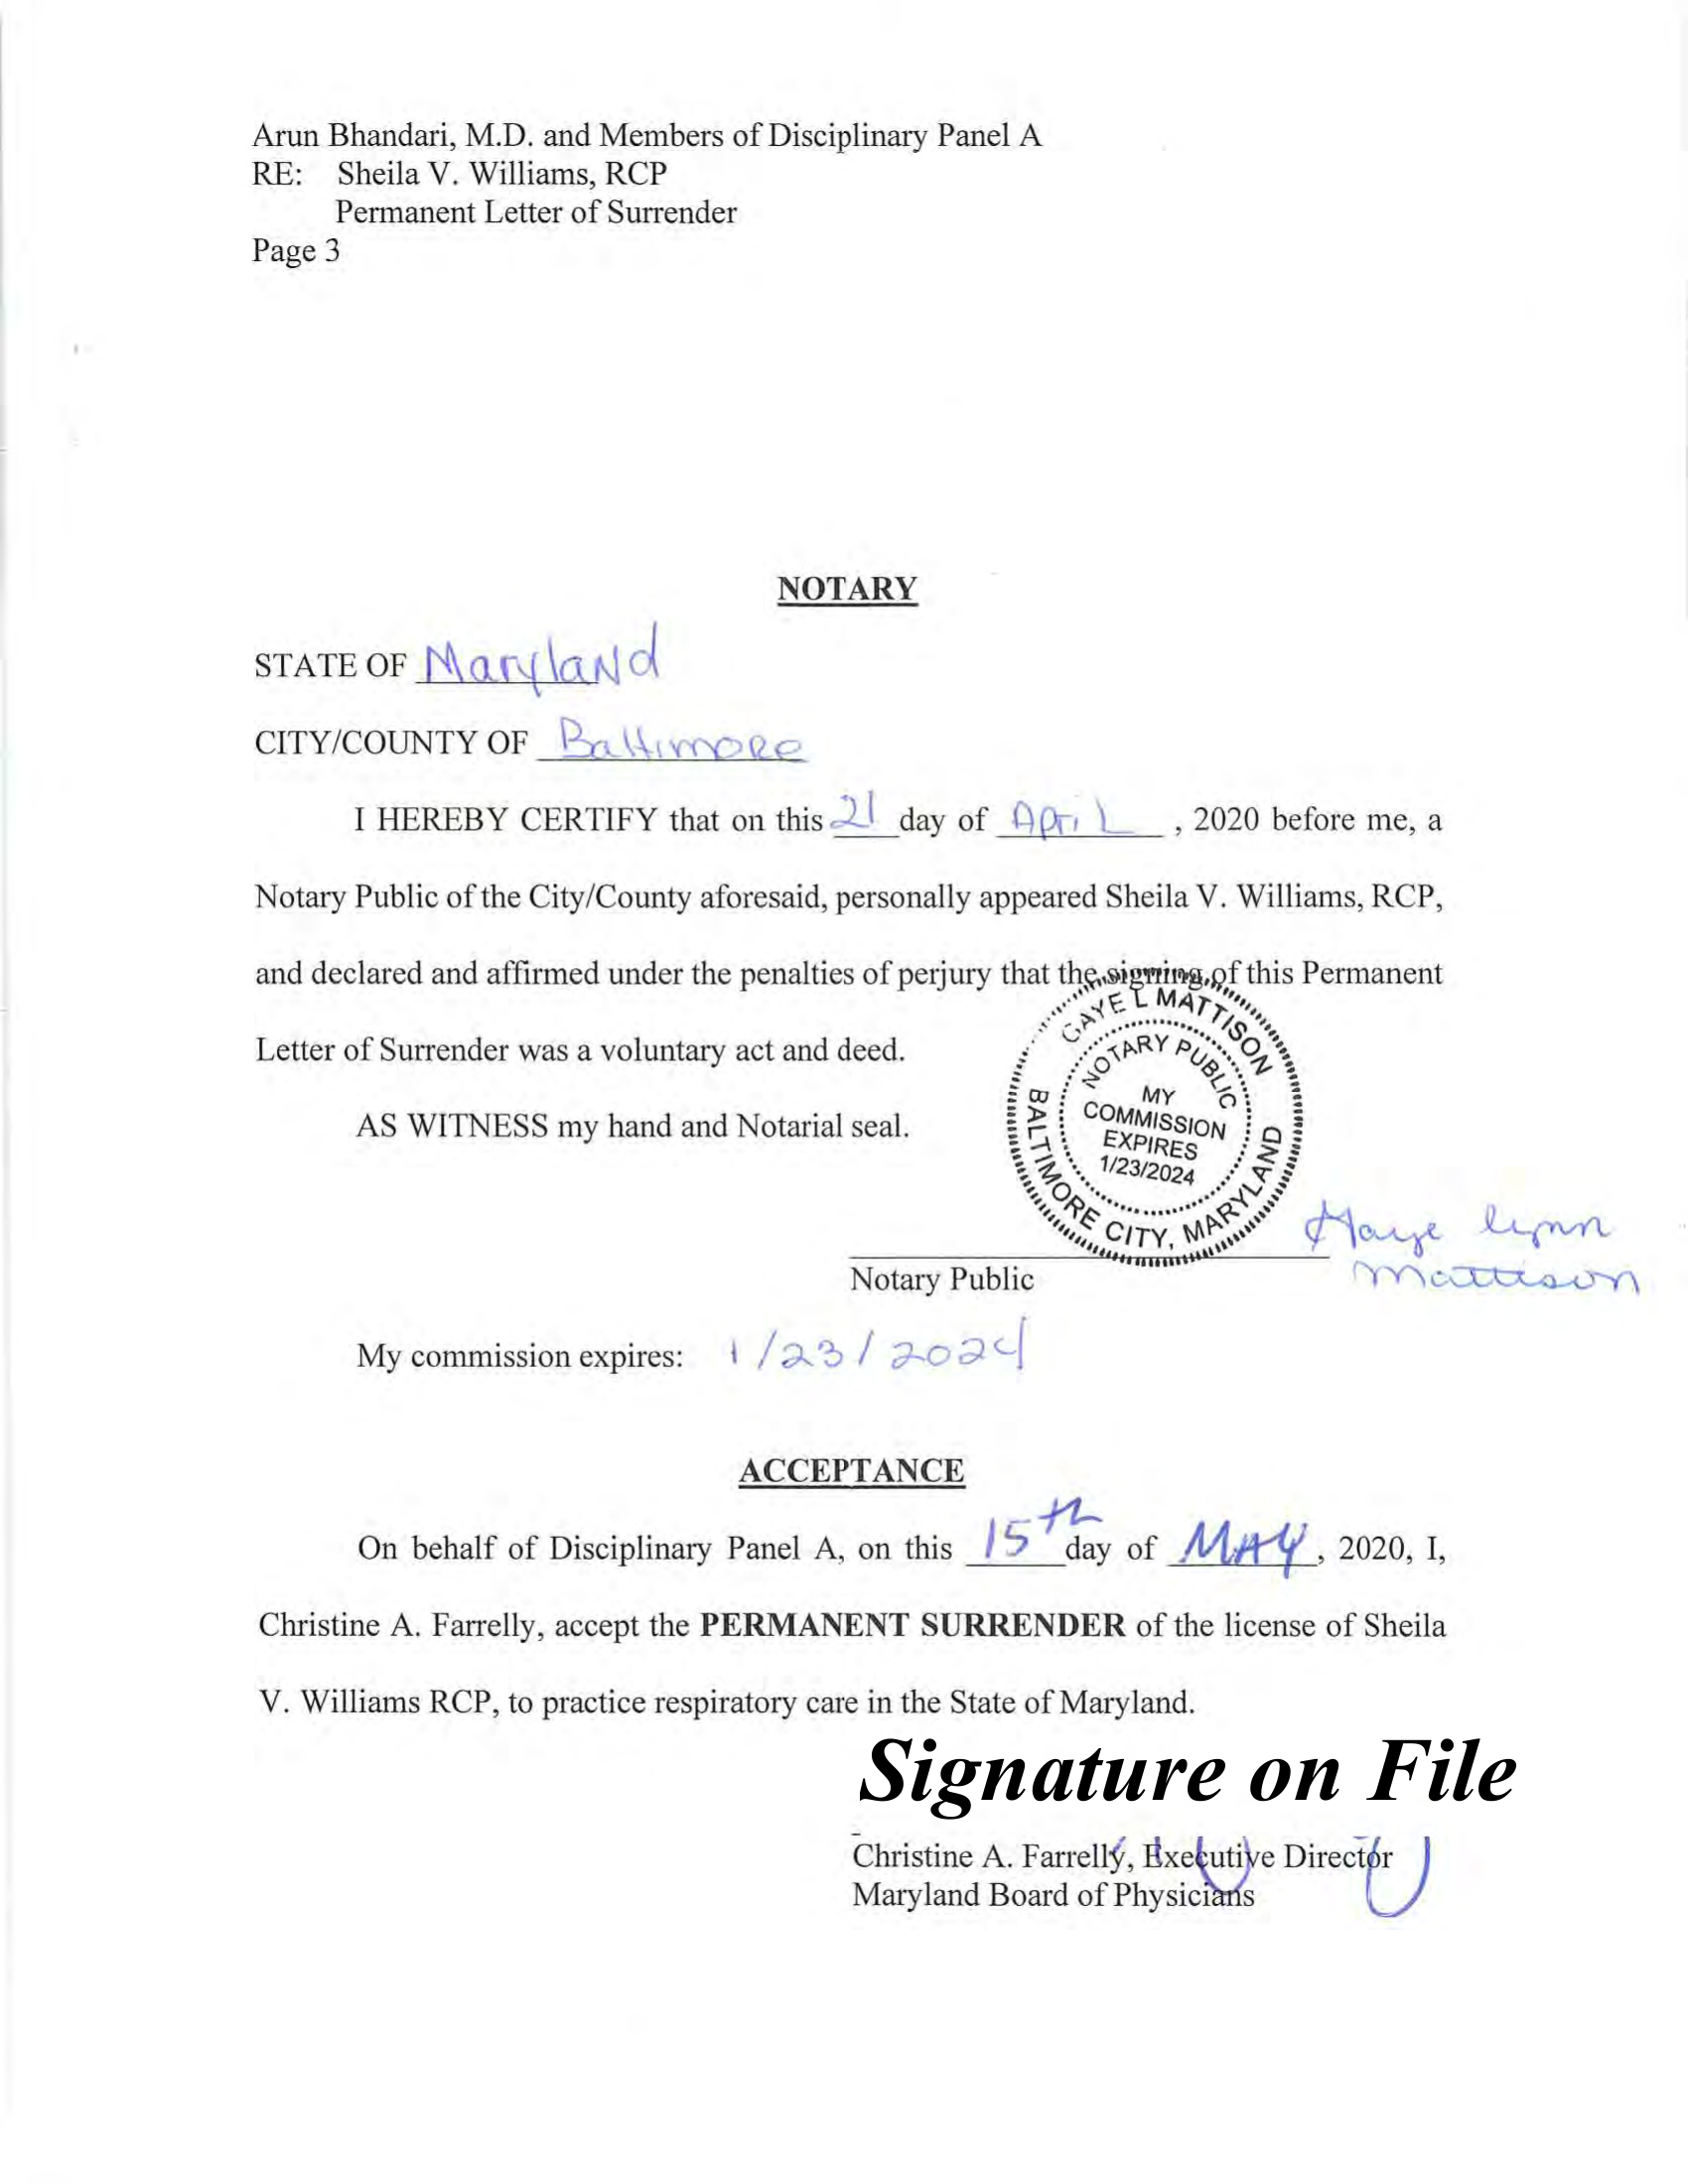 Arun Bhandari, M.D. and Members of Disciplinary Panel A
RE: Sheila V. Williams, RCP
Permanent Letter of Surrender
Page 3
NOTARY
STATE OF Maryland
CITY/COUNTY OF Baltimore
I HEREBY CERTIFY that on this 21 day of April, 2020 before me, a
Notary Public of the City/County aforesaid, personally appeared Sheila V. Williams, RCP,
and declared and affirmed under the penalties of perjury that the signing of this Permanent
Letter of Surrender was a voluntary act and deed.
AS WITNESS my hand and Notarial seal.
GAYE L MATTISON
NOTARY PUBLIC
MY
COMMISSION
EXPIRES
1/23/2024
BALTIMORE CITY, MARYLAND
Gaye Lynn
Mattison
Notary Public
My commission expires: 1/23/2024
ACCEPTANCE
On behalf of Disciplinary Panel A, on this 15th day of MAY, 2020, I,
Christine A. Farrelly, accept the PERMANENT SURRENDER of the license of Sheila
V. Williams RCP, to practice respiratory care in the State of Maryland.
Signature on File
Christine A. Farrelly, Executive Director
Maryland Board of Physicians